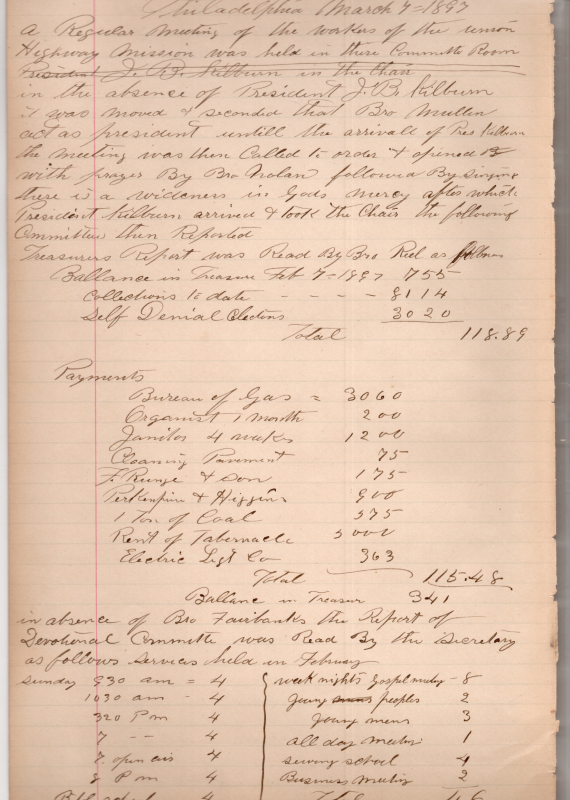 Philadelphia March 7=1897
a Regular Meeting of the workers of the union
Highway Mission was held in there Committe Room
President J. B. Kilburn in the Chair
in the absence of President J. B. Kilburn
it was moved & seconded that Bro Mullen
act as president untill the arrivall of Pres Kilburn
the meeting was then Called to order & opened
with prayer By Bro Nolan followed By singing
there is a wideness in Gods mercy after which
President Kilburn arrived & took the Chair the following
Committee then Reported
Treasurers Report was Read By Bro Reel as follows
Ballance in Treasure Feb 7=1897 755
Collections to date - - - - 8114
Self Denial Clections 3020
Total 118.89
Payments
Bureau of Gas = 3060
Organist 1 month 200
Janitor 4 weekes 1200
Cleaning Pavement 75
F. Runge & Son 175
& Higgins 900
1 Ton of Coal 575
Rent of Tabernacle 5000
Electric Ligt Co 363
Total 115.48
Ballanc in Treasur 341
in absence of Bro Fairbanks the Report of
Devotional Committe was Read By the Secretary
as follows Services held in February
Sunday 930 am = 4
1030 am - 4
320 Pm 4
7 -- 4
7 open air 4
8 Pm 4
week nights Gospl meetg - 8
young mens peoples 2
young mens 3
all day meeting 1
sewing school 4
Business Meeting 2
4 Total 46